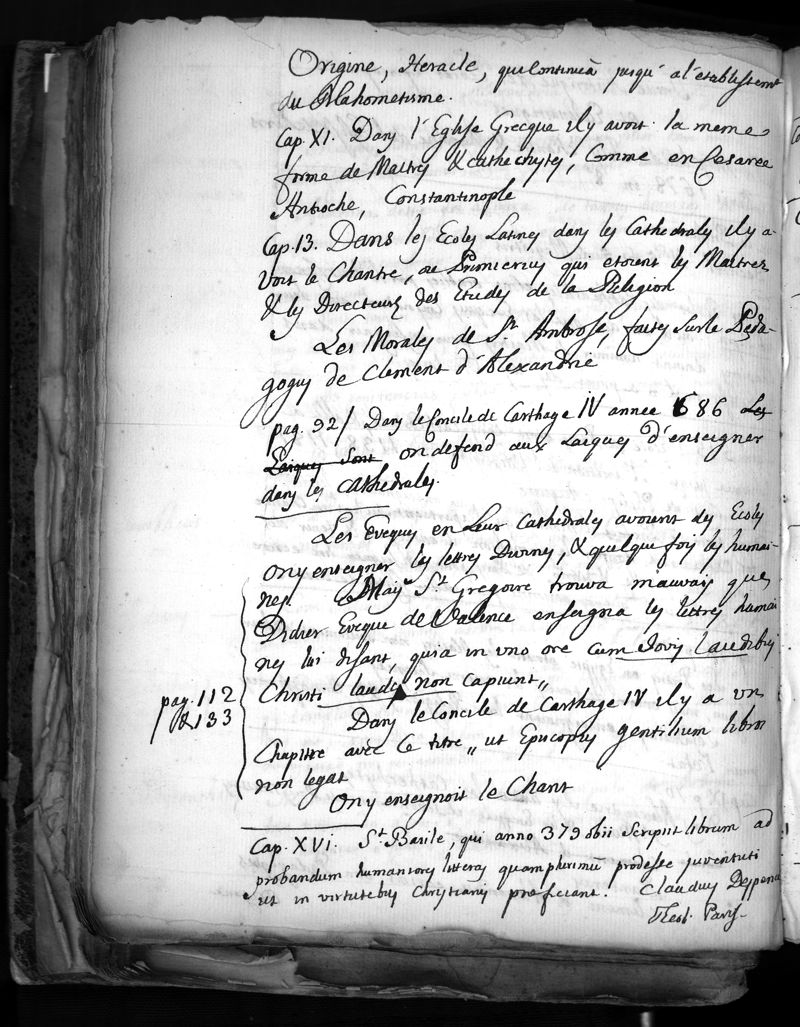 Origine, Heracle, qui Continua jusqu'a l'etablissemt
du Mahometisme.
Cap. XI. Dans l'Eglise Grecque il y avoit la meme
forme de Maitres & cathechystes, Comme en Cesaree
Antioche, Constantinople
Cap. 13. Dans les Ecoles Latines dans les Cathedrales il y a-
voit le Chantre, ou Primicerius qui etoient les Maitres
& les Directeurs des Etudes de la Religion
Les Morales de St Ambroise, faites sur le Peda-
gogus de Clement d'Alexandrie
pag. 92/ Dans le Concile de Carthage IV année 686 Les
Laiques sont on defend aux Laiques d'enseigner
dans les Cathedrales.
Les Eveques en Leur Cathedrales avoient des Ecoles
On y enseigner les lettres Divines, & quelque fois les humai-
nes. Mais St Gregoire trouva mauvais que
Didier Eveque de Valence enseigna les lettres humai
nes lui disant, quia in uno ore cum Jovis laudibus
Christi laudes non capiunt „
pag. 112
& 133
Dans le Concile de Carthage IV il y a un
Chapitre avec ce titre „ ut Episcopus gentilium libros
non legat
On y enseignoit le Chant
Cap. XVI. St Basile, qui anno 379 obii Scripsit librum ad
probandum humaniores litteras quamplurimū prodesse juventuti
ut in virtutibus Christianis proficiant. Claudius Despence
Theol. Paris.